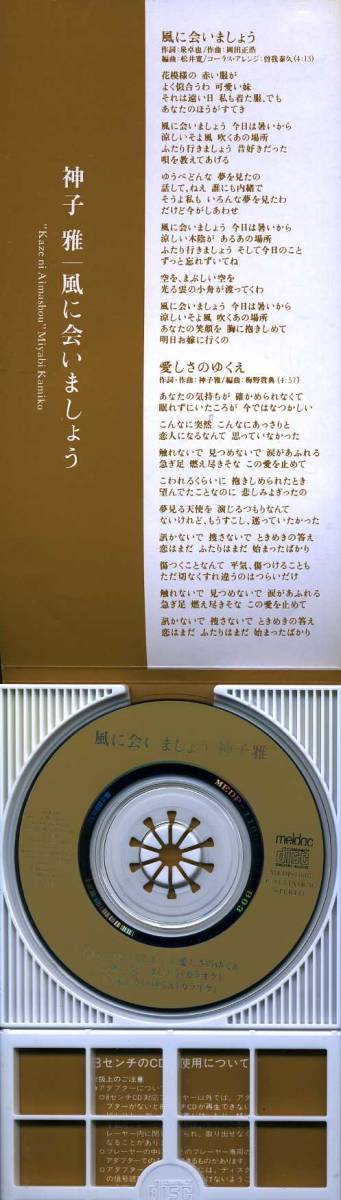 神子 雅｜風に会いましょう
"Kaze ni Aimashou" Miyabi Kamiko
風に会いましょう
作詞:泉卓也/作曲:岡田正浩
編曲:松井寛/コーラス・アレンジ:曽我泰久(4:13)
花模様の 赤い服が
よく似合うわ 可愛い妹
それは遠い日 私も着た服、でも
あなたのほうがすてき
風に会いましょう 今日は暑いから
涼しいそよ風 吹くあの場所
ふたり行きましょう 昔好きだった
唄を教えてあげる
ゆうべどんな 夢を見たの
話して、ねえ 誰にも内緒で
そうよ私も いろんな夢を見たわ
だけど今がしあわせ
風に会いましょう 今日は暑いから
涼しい木陰が あるあの場所
ふたり行きましょう そして今日のこと
ずっと忘れずいてね
空を、まぶしい空を
光る雲の小舟が渡ってくわ
風に会いましょう 今日は暑いから
涼しいそよ風 吹くあの場所
あなたの笑顔を 胸に抱きしめて
明日お嫁に行くの
愛しさのゆくえ
作詞・作曲:神子雅/編曲:梅野貴典(4:57)
あなたの気持ちが 確かめられなくて
眠れずにいたころが 今ではなつかしい
こんなに突然 こんなにあっさりと
恋人になるなんて 思っていなかった
触れないで 見つめないで 涙があふれる
急ぎ足 燃え尽きそな この愛を止めて
こわれるくらいに 抱きしめられたとき
望んでたことなのに 悲しみよぎったの
夢見る天使を 演じるつもりなんて
ないけれど、もうすこし、迷っていたかった
訊かないで 捜さないで ときめきの答え
恋はまだ ふたりはまだ 始まったばかり
傷つくことなんて 平気、傷つけることも
ただ切なくすれ違うのはつらいだけ
触れないで 見つめないで 涙があふれる
急ぎ足 燃え尽きそな この愛を止めて
訊かないで 捜さないで ときめきの答え
恋はまだ ふたりはまだ 始まったばかり
風に会いましょう 神子雅
meldac
COMPACT
disc
DIGITAL AUDIO
STEREO
B03
愛しさのゆくえ
(カラオケ)
(カラオケ)
8センチのCD 使用について
扱上のご注意
アダプターについて
8センチCD対応
レーヤー以外では、アダ
プターがないと CDが再生できない
レーヤー内に 取り出せなく
なることがあり
プレーヤーの中に プレーヤー専用の
アダプターでの
アダプター には、ディスク
の信号読
disc